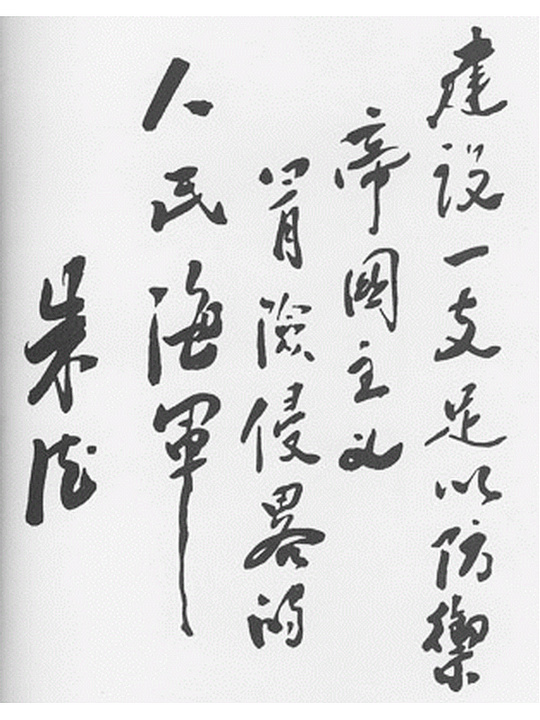 建设一支足以防禦
帝國主义
冒險侵畧的
人民海軍
朱德